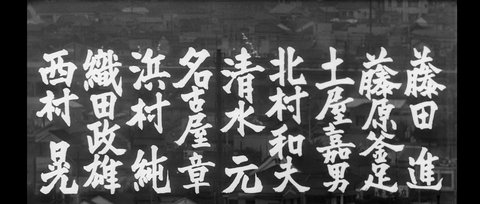 藤田進
藤原釜足
土屋嘉男
北村和夫
清水元
名古屋章
浜村純
織田政雄
西村晃